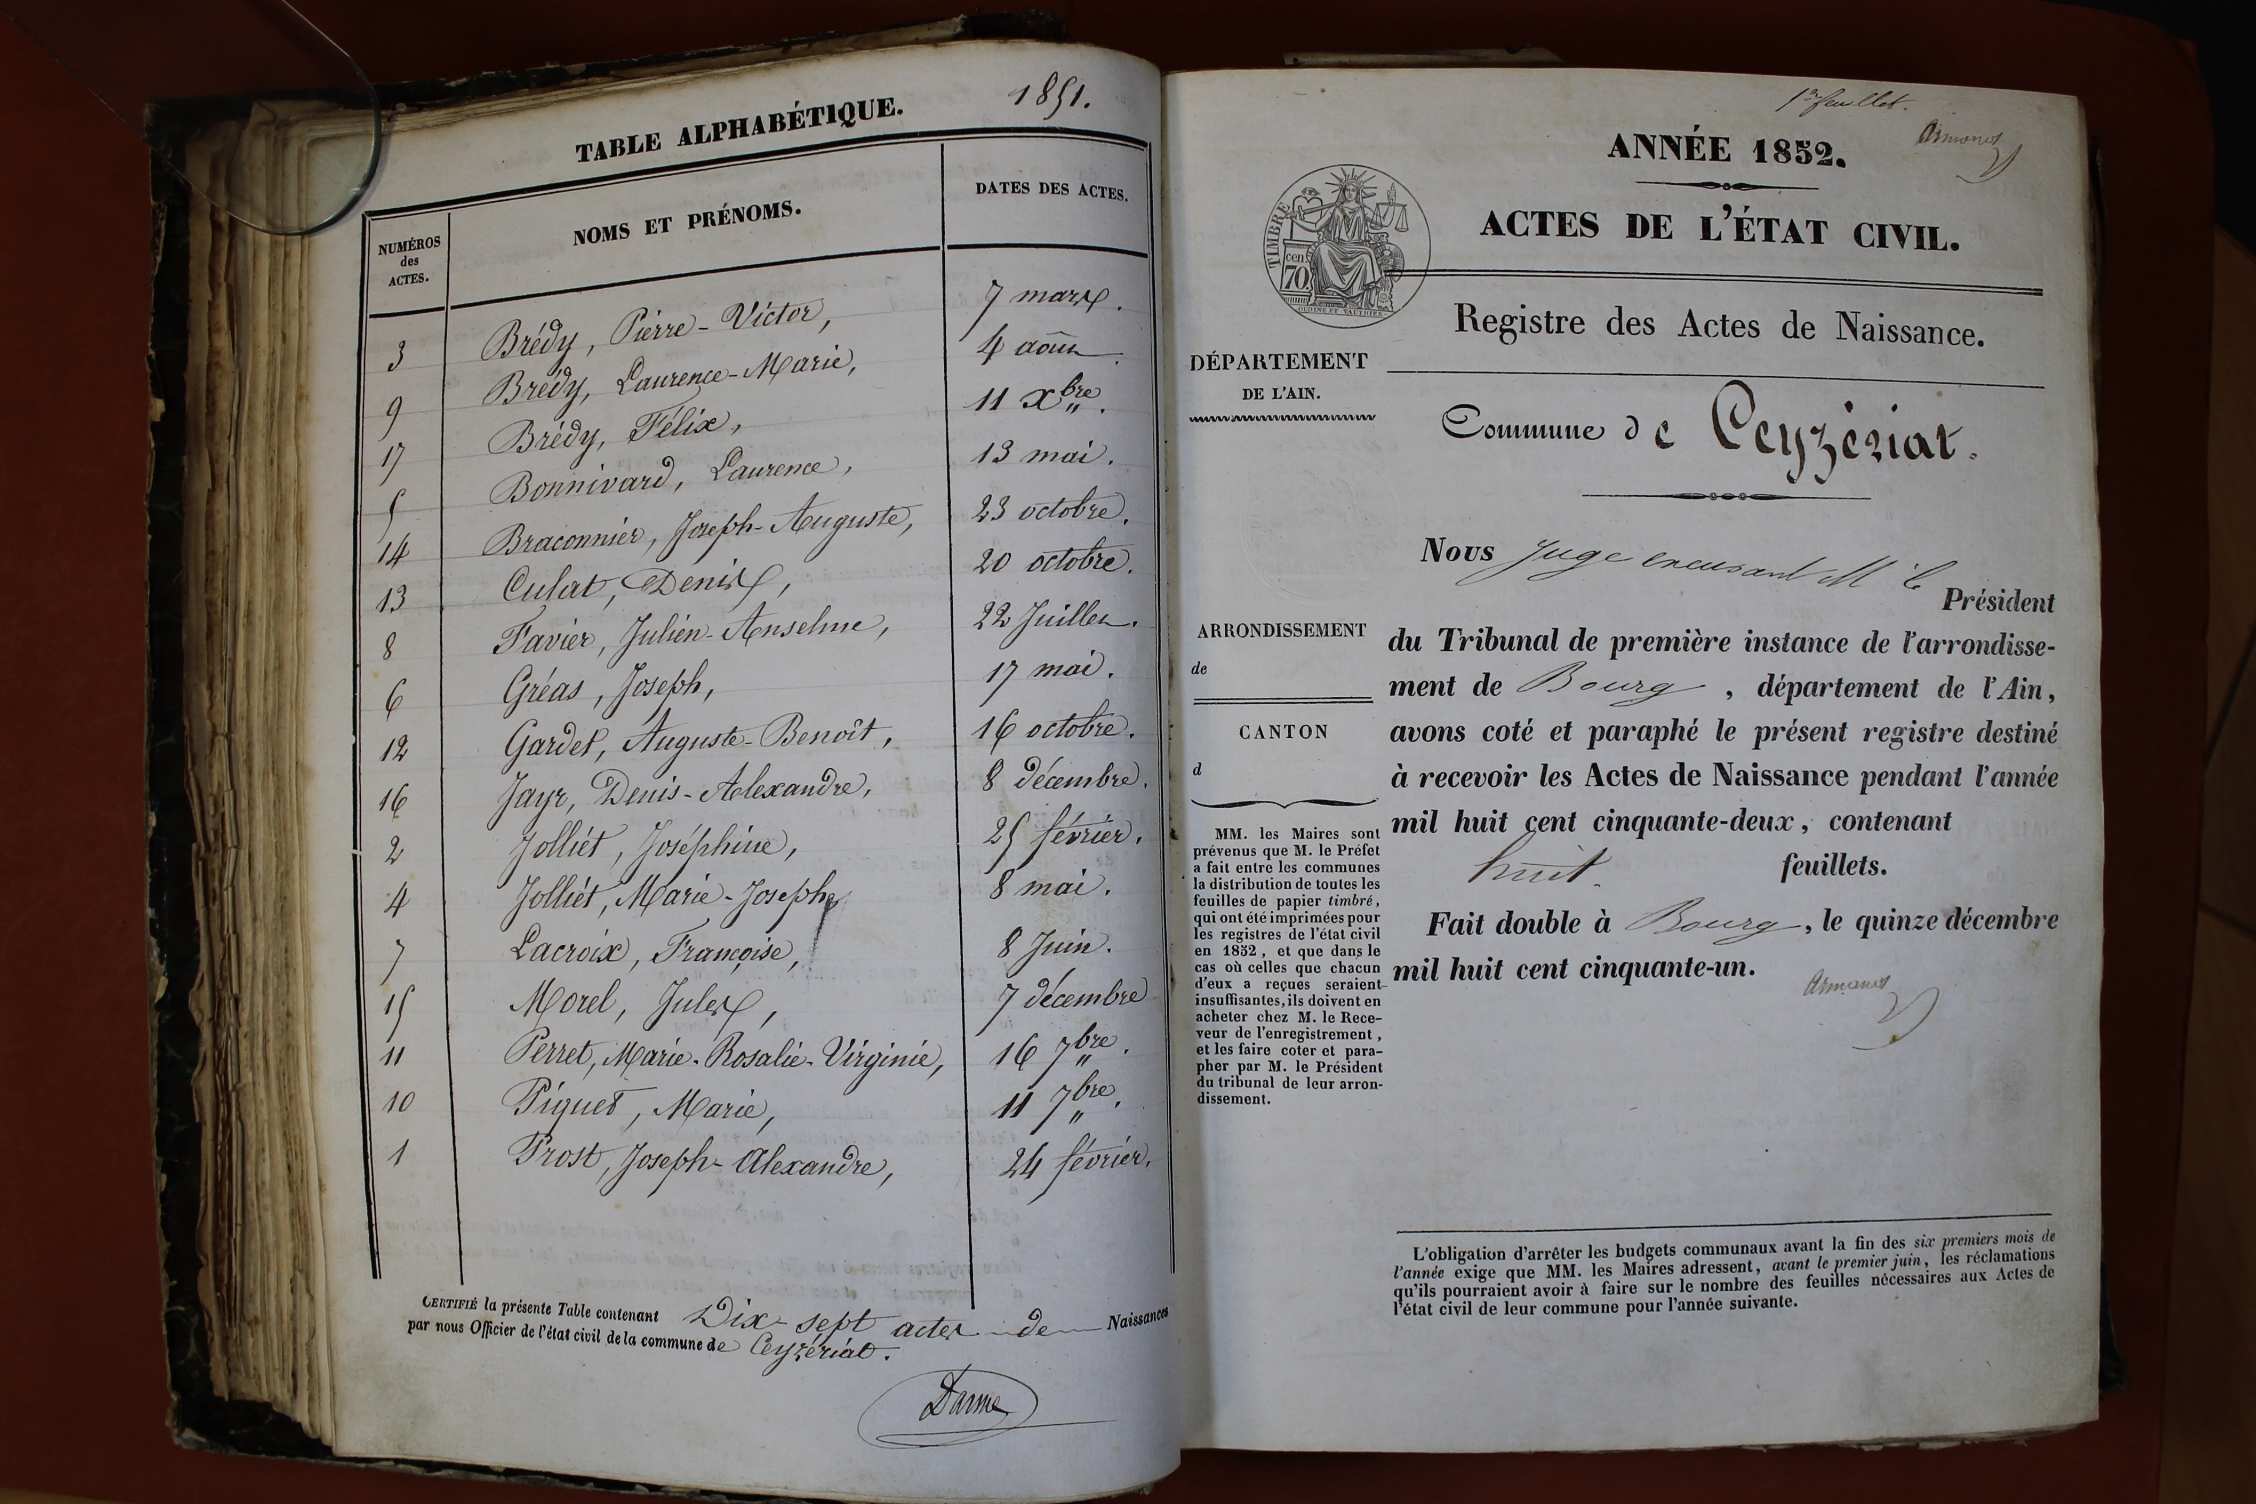 TABLE ALPHABÉTIQUE. 1851.
NUMÉROS des ACTES. NOMS ET PRÉNOMS. DATES DES ACTES.
3 Brédy, Pierre-Victor, 7 mars.
9 Brédy, Laurence-Marie, 4 août.
17 Brédy, Félix, 11 Xbre.
5 Bonnivard, Laurence, 13 mai.
14 Braconnier, Joseph-Auguste, 23 octobre.
13 Culat, Denis, 20 octobre.
8 Favier, Julien-Anselme, 22 Juillet.
6 Gréas, Joseph, 17 mai.
12 Gardet, Auguste-Benoît, 16 octobre.
16 Jayr, Denis-Alexandre, 8 décembre.
2 Jolliet, Joséphine, 25 février.
4 Jolliet, Marie-Josephe 8 mai.
7 Lacroix, Françoise, 8 Juin.
15 Morel, Jules, 7 décembre
11 Perret, Marie-Rosalie-Virginie, 16 7bre.
10 Piquet, Marie, 11 7bre.
1 Prost, Joseph-Alexandre, 24 février.
CERTIFIÉ la présente Table contenant Dix-sept actes de Naissances
par nous Officier de l'état civil de la commune de Ceyzériat.
Darme
1er feuillet.
ANNÉE 1852.
TIMBRE
70 cen.
OUDINÉ ET VAUTHIER
ACTES DE L'ÉTAT CIVIL.
Registre des Actes de Naissance.
DÉPARTEMENT
DE L'AIN.
Commune de Ceyzériat.
ARRONDISSEMENT
de
CANTON
d
MM. les Maires sont
prévenus que M. le Préfet
a fait entre les communes
la distribution de toutes les
feuilles de papier timbré,
qui ont été imprimées pour
les registres de l'état civil
en 1852, et que dans le
cas où celles que chacun
d'eux a reçues seraient
insuffisantes, ils doivent en
acheter chez M. le Rece-
veur de l'enregistrement,
et les faire coter et para-
pher par M. le Président
du tribunal de leur arron-
dissement.
Nous Juge M le
Président
du Tribunal de première instance de l'arrondisse-
ment de Bourg, département de l'Ain,
avons coté et paraphé le présent registre destiné
à recevoir les Actes de Naissance pendant l'année
mil huit cent cinquante-deux, contenant
huit. feuillets.
Fait double à Bourg, le quinze décembre
mil huit cent cinquante-un.
L'obligation d'arrêter les budgets communaux avant la fin des six premiers mois de
l'année exige que MM. les Maires adressent, avant le premier juin, les réclamations
qu'ils pourraient avoir à faire sur le nombre des feuilles nécessaires aux Actes de
l'état civil de leur commune pour l'année suivante.